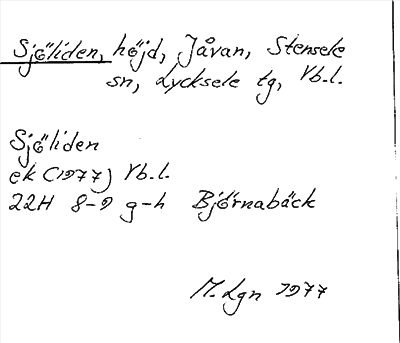 Sjöliden, höjd, Jåvan, Stensele
sn, Lycksele tg, Vb.l.
Sjöliden
ek (1977) Vb.l.
22H 8-9 g-h Björnabäck
M. Lgn 1977